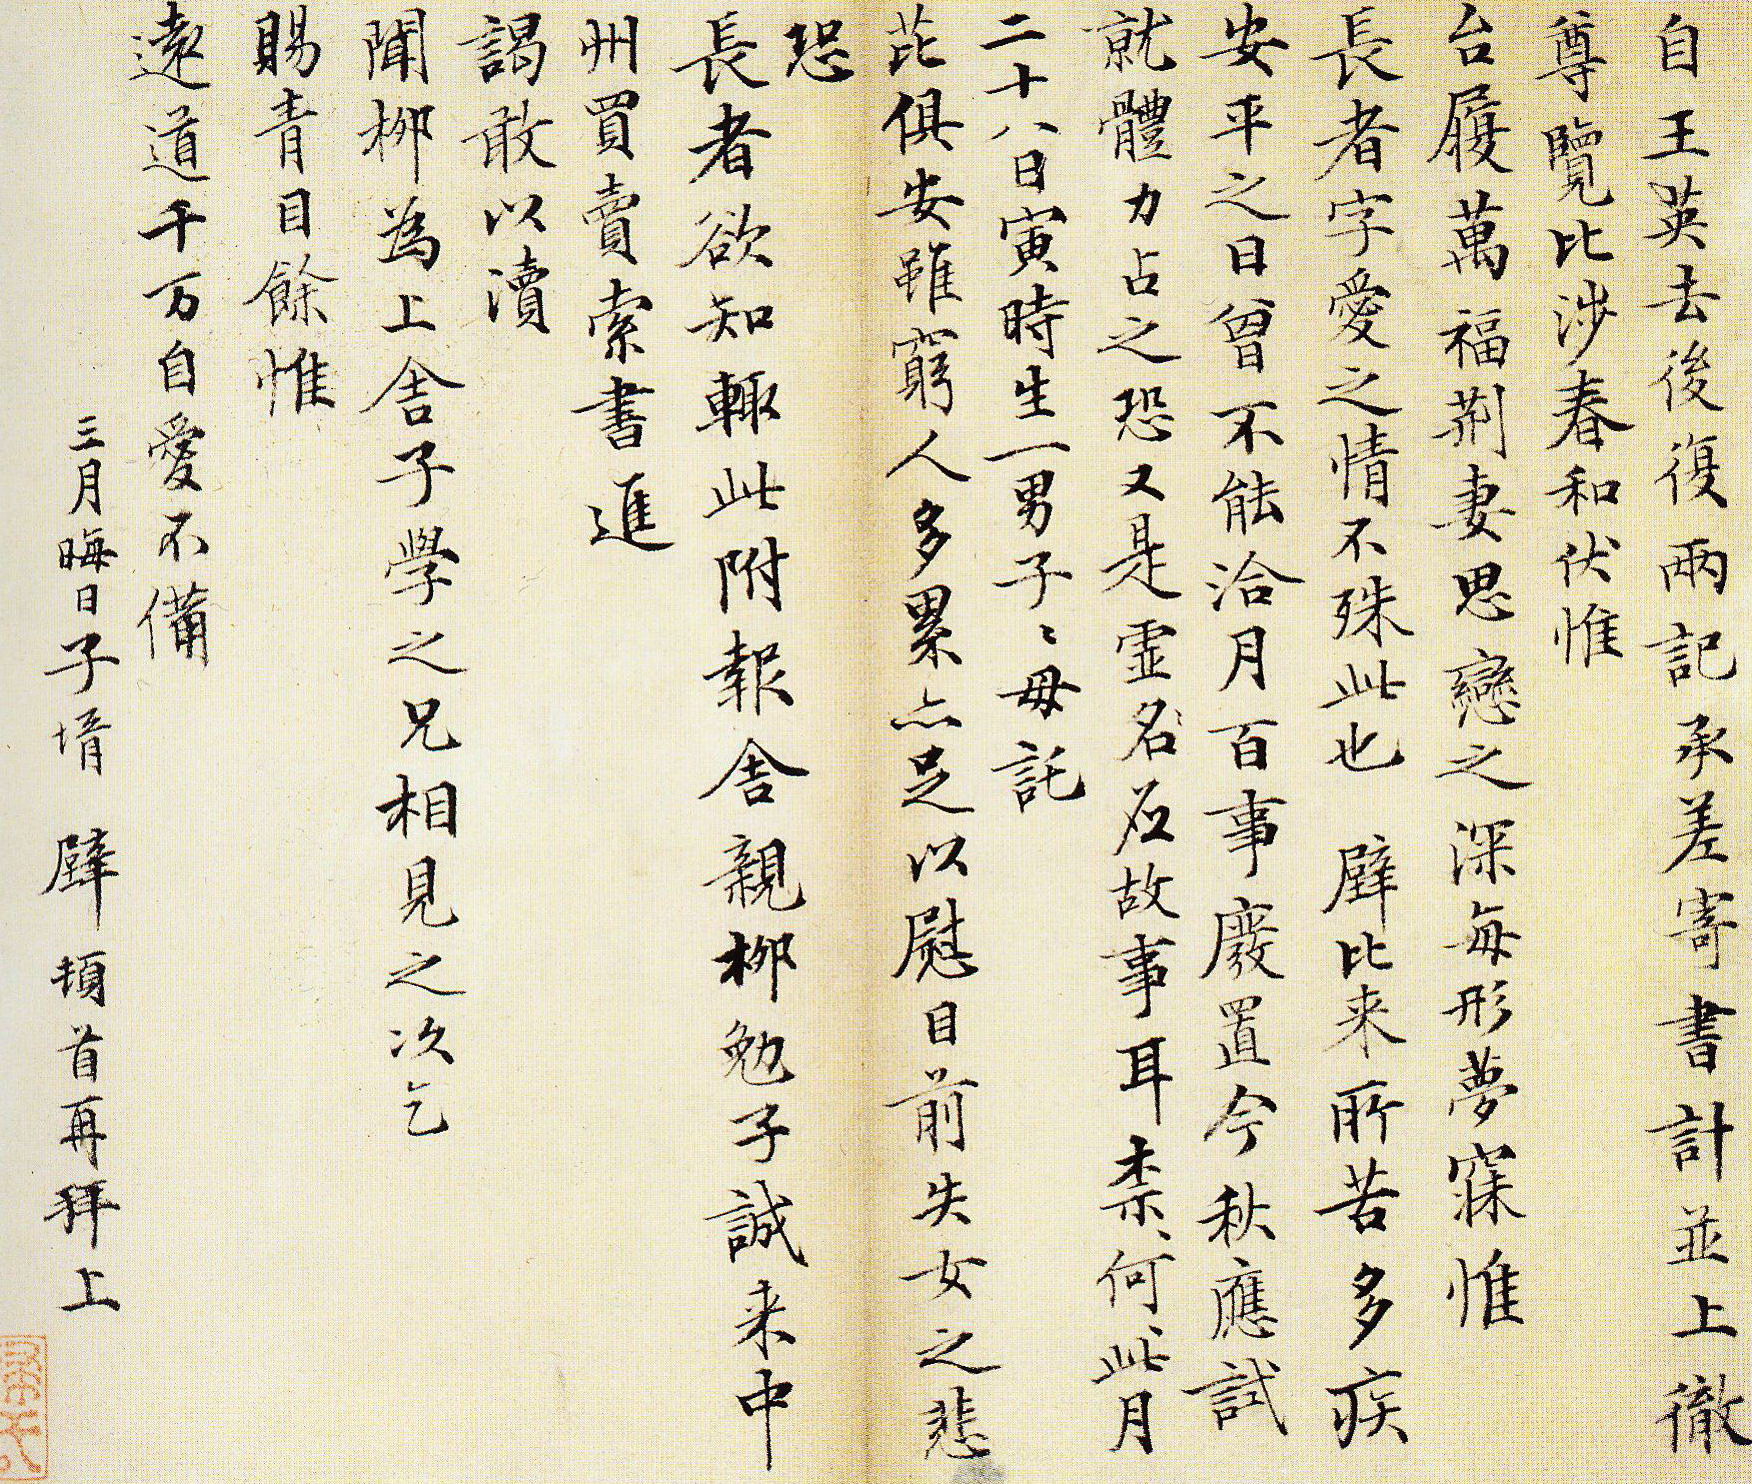 自王英去後復兩記承差寄書計並上徹
尊覽比涉春和伏惟
台履萬福荊妻思戀之深每形夢寐惟
長者字愛之情不殊此也 辟比来所苦多疾
安平之日曾不能洽月百事廢置今秋應試
就體力占之恐又是虛名應故事耳柰何柰何此月
二十八日寅時生一男子〻母託
芘俱安雖窮人多累亦足以慰目前失女之悲
恐
長者欲知輙此附報舍親栁勉子誠来中
州買賣索書進
謁敢以瀆
聞栁為上舍子學之兄相見之次乞
賜青目餘惟
遠道千万自愛不備
三月晦日子壻 辟頓首再拜上